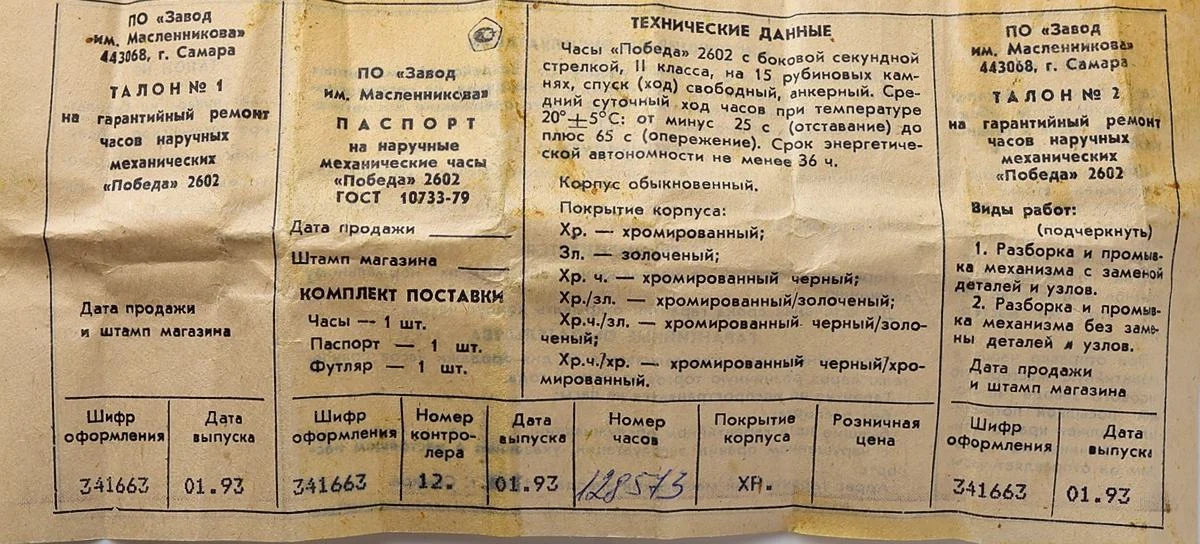 ПО «Завод
им. Масленникова»
443068, г. Самара
ТАЛОН № 1
на гарантийный ремонт
часов наручных
механических
«Победа» 2602
Дата продажи
и штамп магазина
Шифр
оформления
Дата
выпуска
341663
01.93
ПО «Завод
им. Масленникова»
ПАСПОРТ
на наручные
механические часы
«Победа» 2602
ГОСТ 10733-79
Дата продажи
Штамп магазина
КОМПЛЕКТ ПОСТАВКИ
Часы — 1 шт.
Паспорт — 1 шт.
Футляр — 1 шт.
ТЕХНИЧЕСКИЕ ДАННЫЕ
Часы «Победа» 2602 с боковой секундной
стрелкой, II класса, на 15 рубиновых кам-
нях, спуск (ход) свободный, анкерный. Сре-
дний суточный ход часов при температуре
20°±5°С: от минус 25 с (отставание) до
плюс 65 с (опережение). Срок энергетиче-
ской автономности не менее 36 ч.
Корпус обыкновенный.
Покрытие корпуса:
Хр. — хромированный;
Зл. — золоченый;
Хр. ч. — хромированный черный;
Хр./зл. — хромированный/золоченый;
Хр.ч./зл. — хромированный черный/золо-
ченый;
Хр.ч./хр. — хромированный черный/хро-
мированный.
Шифр
оформления
Номер
контро-
лера
Дата
выпуска
Номер
часов
Покрытие
корпуса
Розничная
цена
341663
12.
01.93
128573
ХР.
ПО «Завод
им. Масленникова»
443068, г. Самара
ТАЛОН № 2
на гарантийный ремонт
часов наручных
механических
«Победа» 2602
Виды работ:
(подчеркнуть)
1. Разборка и промыв-
ка механизма с заменой
деталей и узлов.
2. Разборка и промыв-
ка механизма без заме-
ны деталей и узлов.
Дата продажи
и штамп магазина
Шифр
оформления
Дата
выпуска
341663
01.93